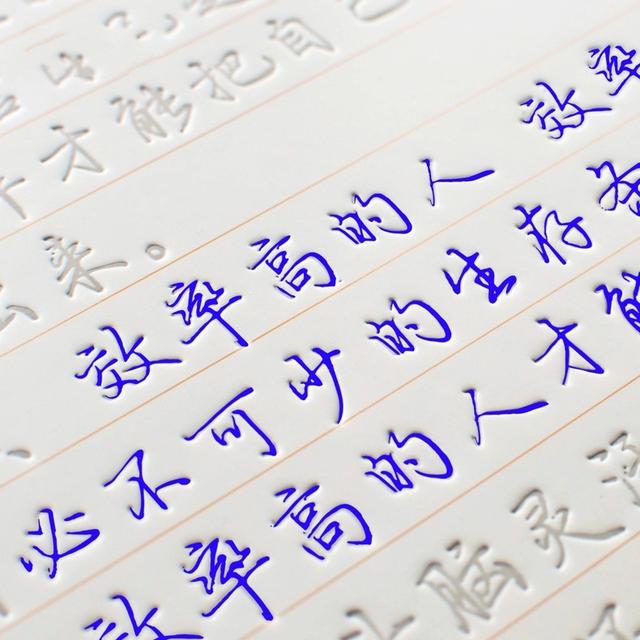 才能把自己
来。
效率高的人 效率
必不可少的生存
效率高的人才能
脑灵